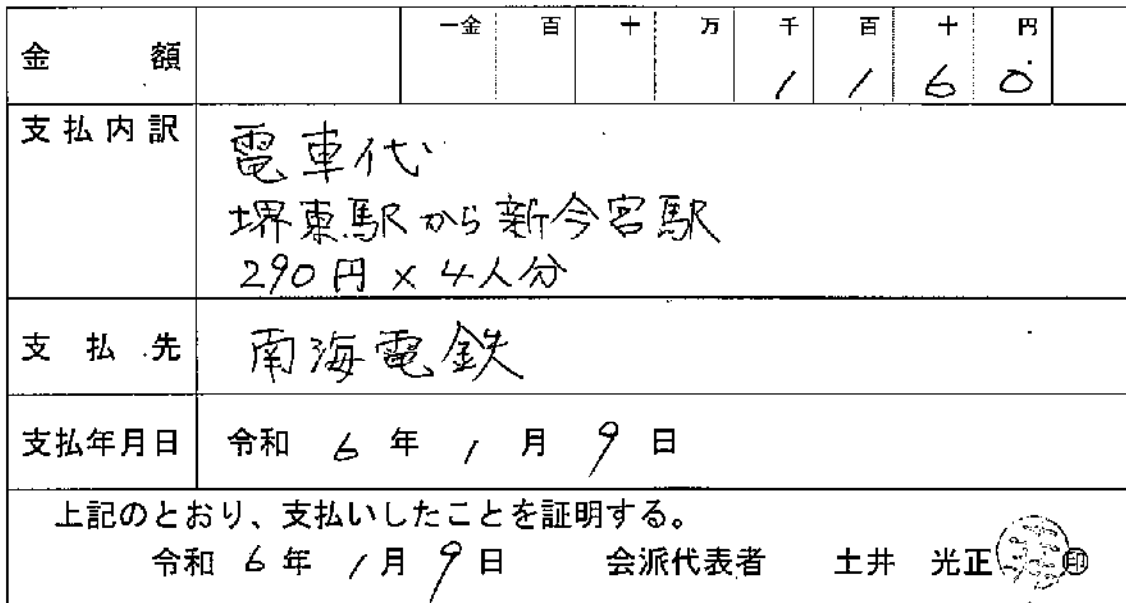 金額 一金 百 十 万 千 百 十 円
1 1 6 0
支払内訳
電車代
堺東駅から新今宮駅
290円×4人分
支払先 南海電鉄
支払年月日 令和 6 年 1 月 9 日
上記のとおり、支払いしたことを証明する。
令和 6 年 1 月 9 日 会派代表者 土井 光正 ㊞